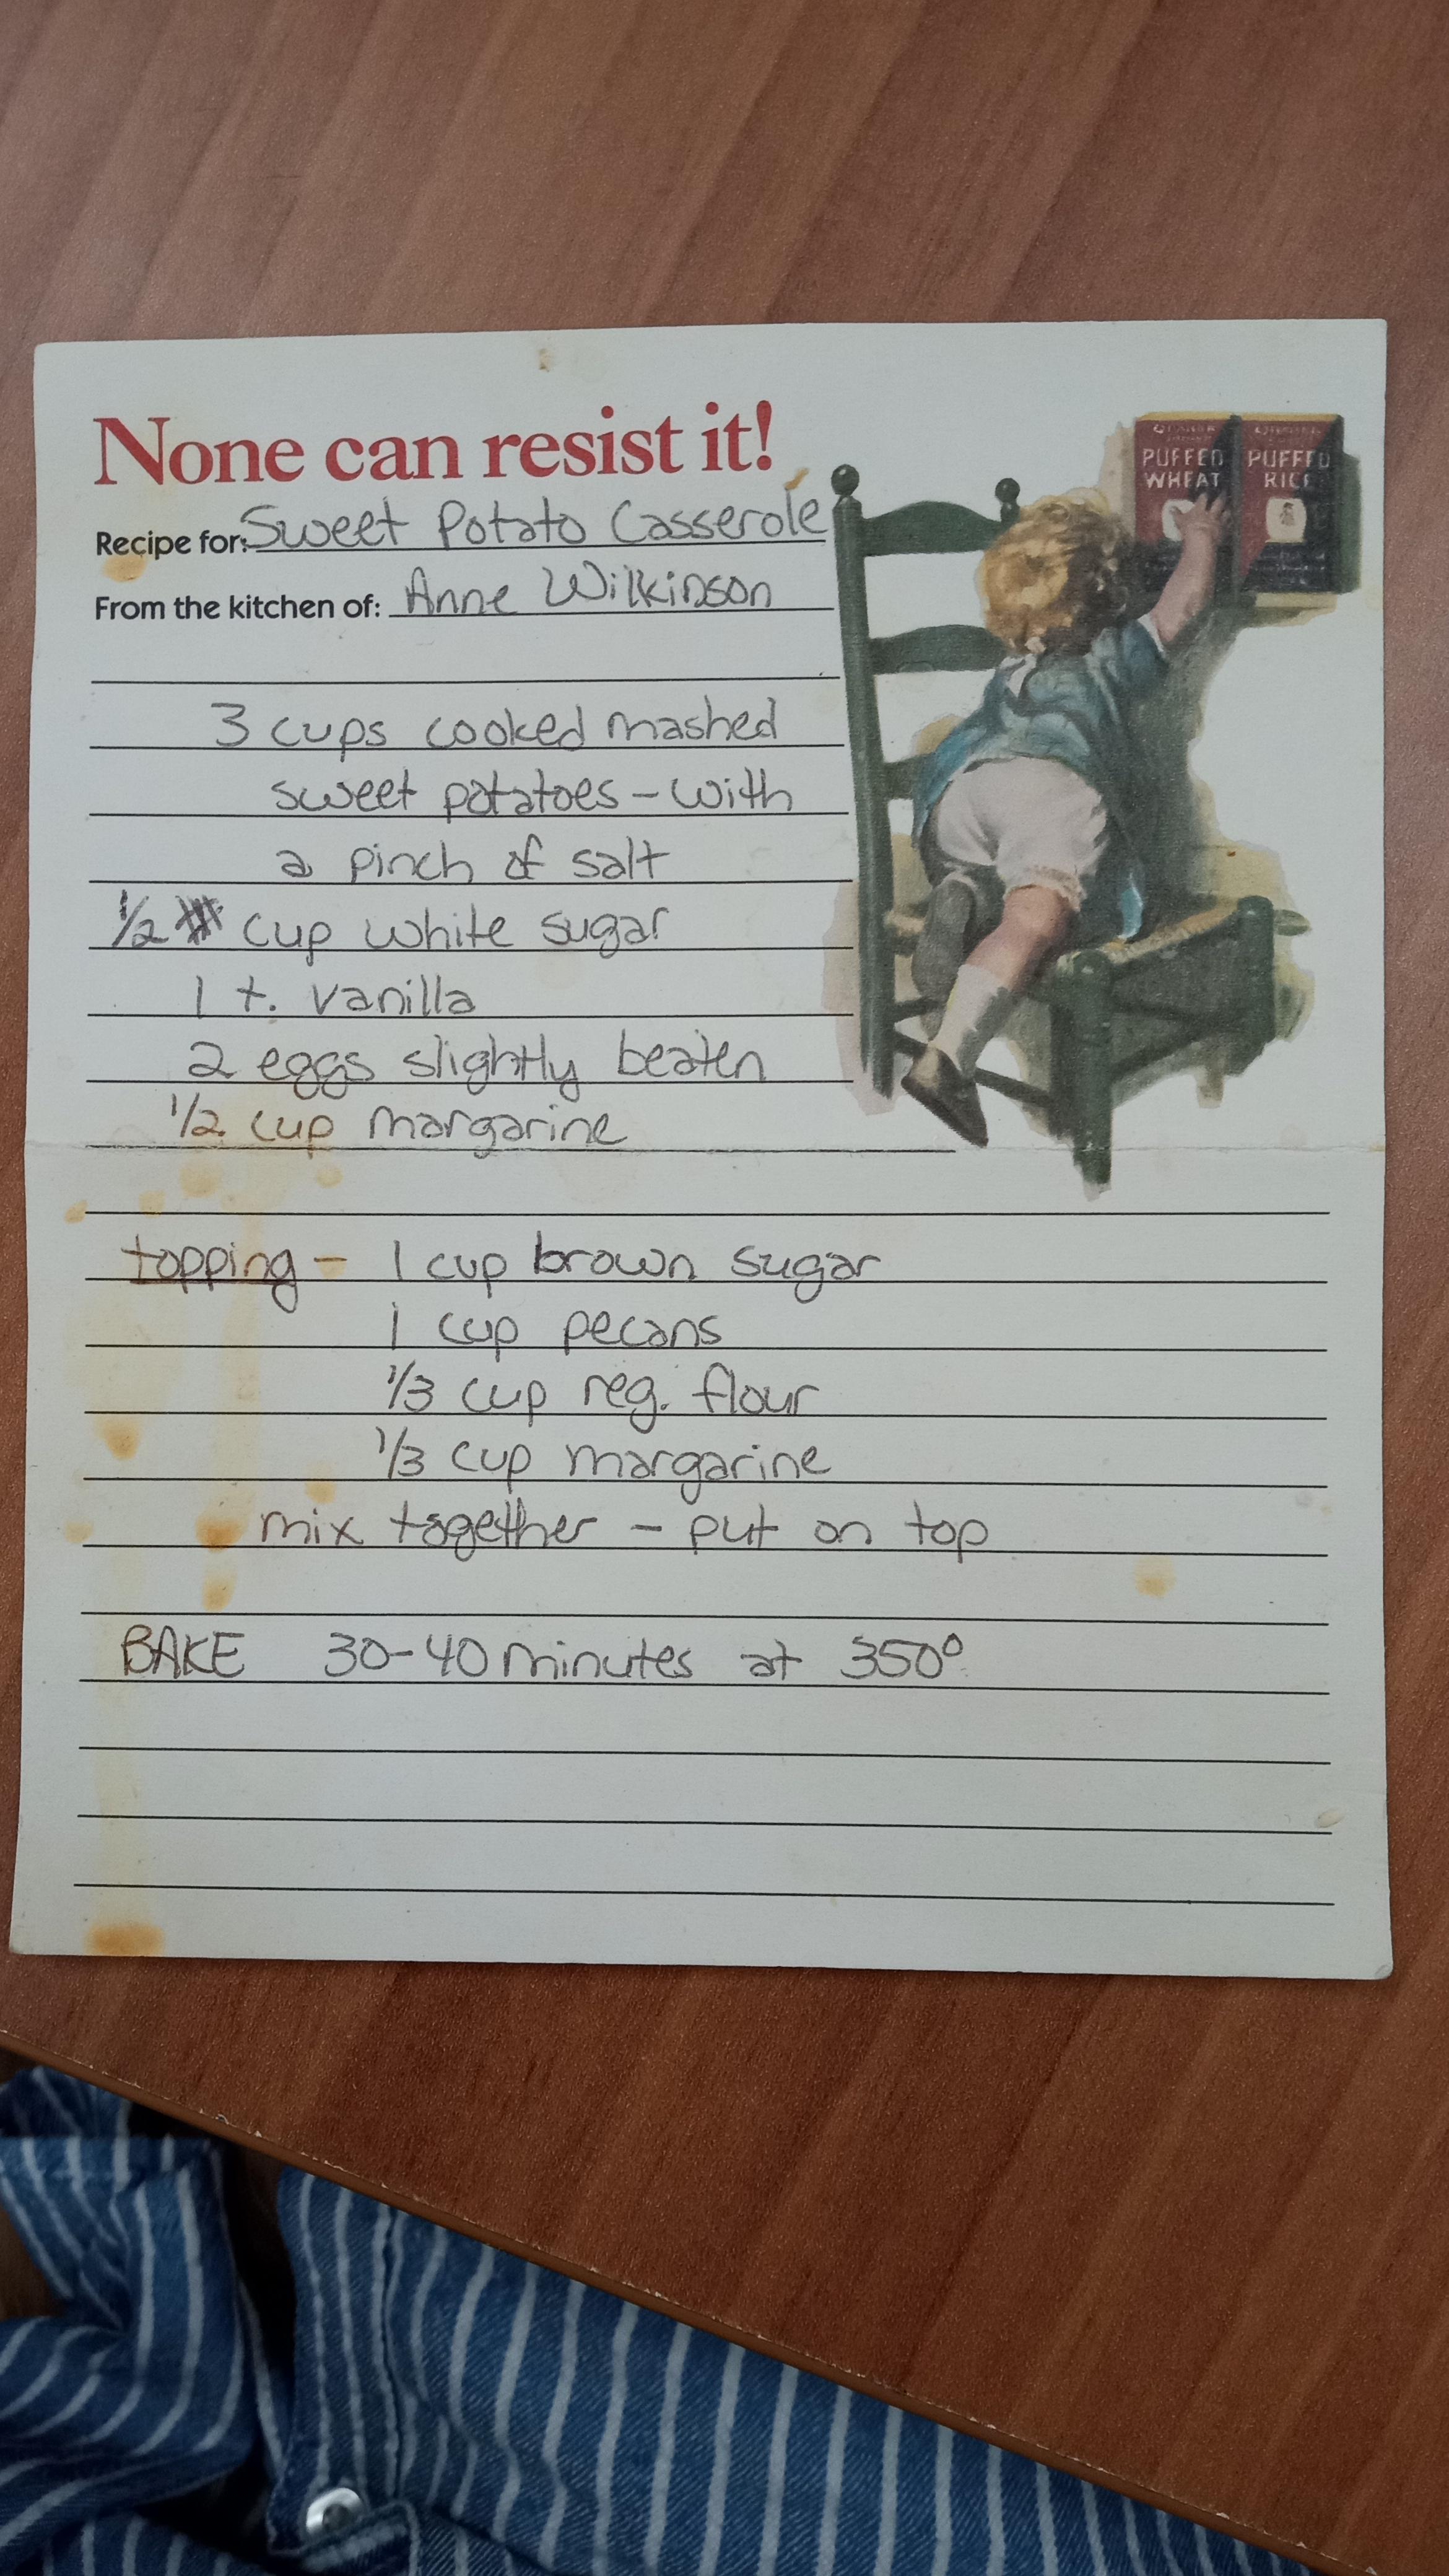 None can resist it!
Recipe for: Sweet Potato Casserole
From the kitchen of: Anne Wilkinson
PUFFED WHEAT
PUFFED RICE
3 cups cooked mashed
sweet potatoes - with
a pinch of salt
1/2 cup white sugar
1 t. vanilla
2 eggs slightly beaten
1/2 cup margarine
topping - 1 cup brown sugar
1 cup pecans
1/3 cup reg. flour
1/3 cup margarine
mix together - put on top
BAKE 30-40 minutes at 350°